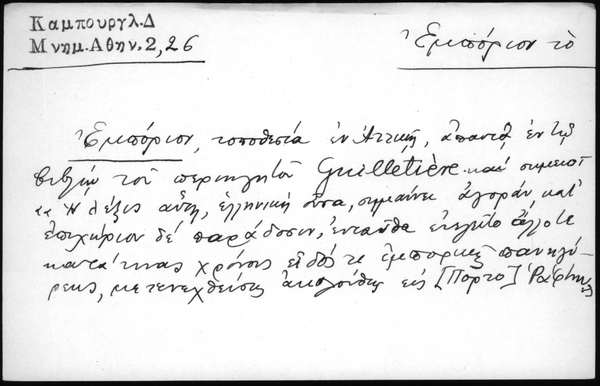 Καμπουργλ.Δ
Μνημ.Αθην.2,26
Ἐμπόριον τὸ
Ἐμπόριον, τοποθεσία ἐν Ἀττικῇ, ἀπαντᾷ ἐν τῷ
βιβλίῳ τοῦ περιηγητοῦ Guilletière καὶ σημειοῖ
"Ἡ λέξις αὕτη, ἑλληνικὴ οὖσα, σημαίνει ἀγοράν, κατ'
ἐπιχώριον δὲ παράδοσιν, ἐνταῦθα ἐτελεῖτο ἄλλοτε
κατά τινας χρόνους εἶδός τι ἐμπορικῆς πανηγύ-
ρεως, μετενεχθείσης ἀκολούθως εἰς [Πόρτο] Ῥάφτην